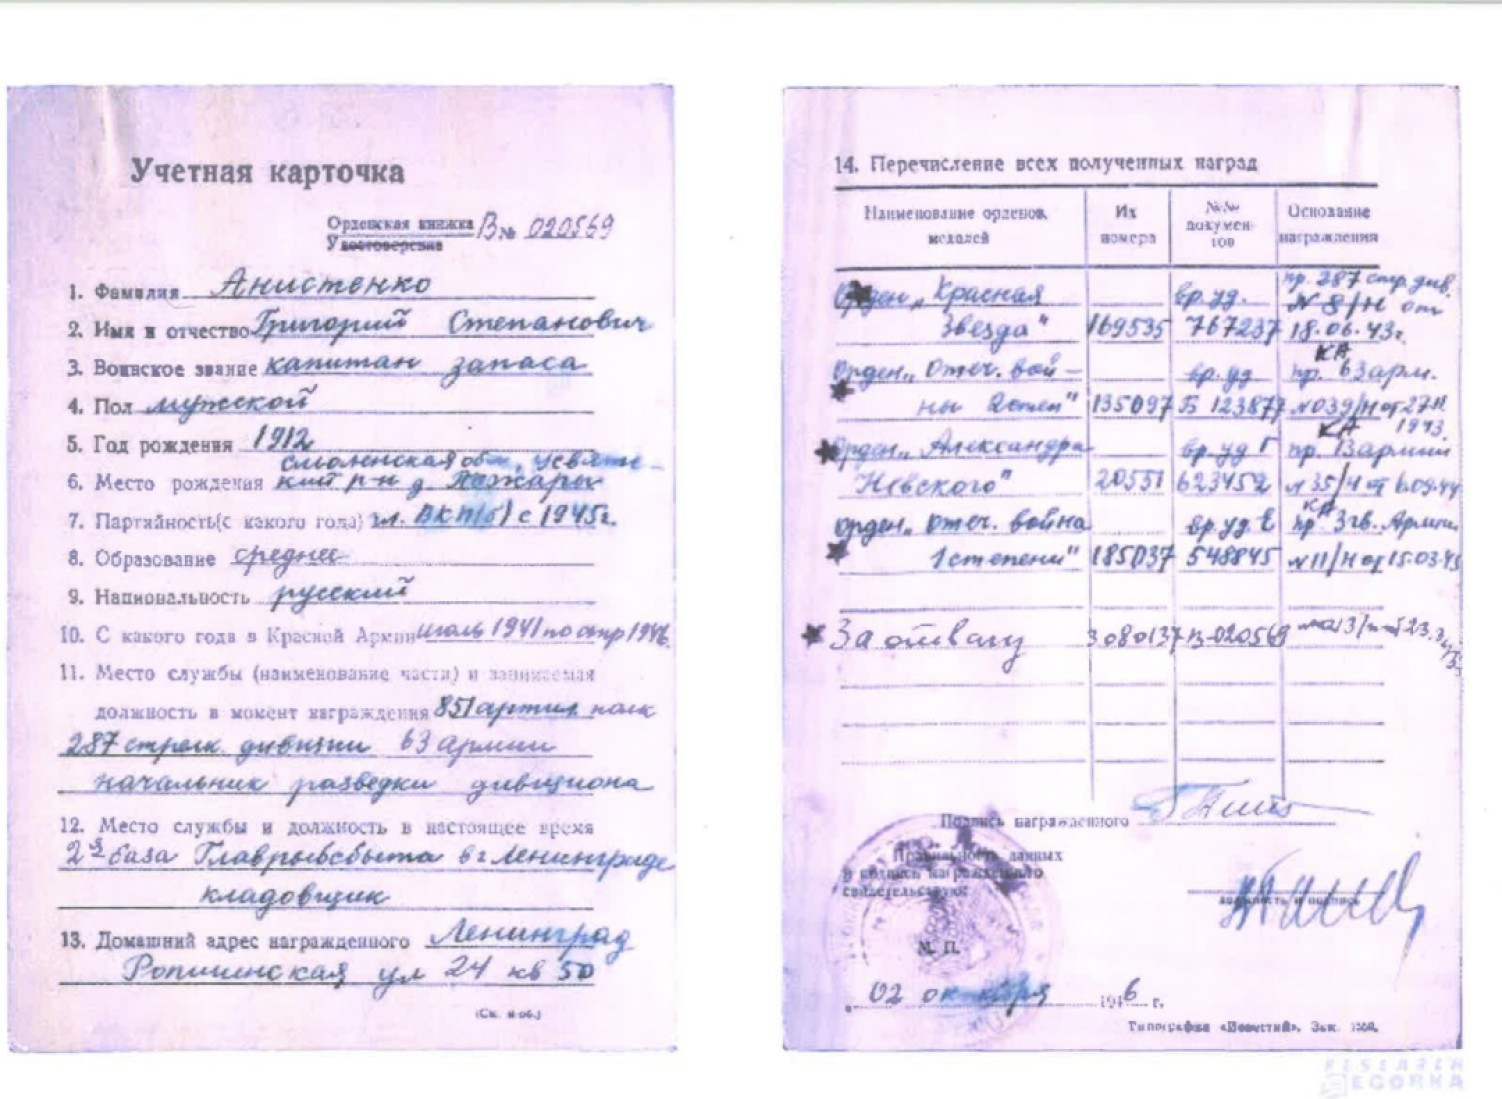 Учетная карточка
Орденская книжка В № 020569
Удостоверение
1. Фамилия Анистенко
2. Имя и отчество Григорий Степанович
3. Воинское звание капитан запаса
4. Пол мужской
5. Год рождения 1912
смоленская обл, усвятс-
6. Место рождения кий р-н д.
7. Партийность (с какого года) чл. ВКП(б) с 1945г.
8. Образование среднее
9. Национальность русский
10. С какого года в Красной Армии июль 1941 по апр 1946
11. Место службы (наименование части) и занимаемая
должность в момент награждения 851 артил полк
287 стрелк. дивизии 63 армии
начальник разведки дивизиона
12. Место службы и должность в настоящее время
2я база Главрыбсбыта в г Ленинграде
кладовщик
13. Домашний адрес награжденного Ленинград
Ропшинская ул 24 кв 50
(См. н об.)
14. Перечисление всех полученных наград
Наименование орденов, медалей
Их номера
№№ документов
Основание награждения
Орден „Красная вр. уд. пр. 287 стр. див. № 8/Н от
Звезда" 169535 767237 18.06.43г.
Орден „Отеч. вой- вр. уд КА пр. 63 арм.
ны 2 степ" 135097 Б 123877 № 039/Н от 27 11 1943.
Орден „Александра вр. уд Г КА пр. 3 армии
Невского" 20551 623452 № 35/Н от 6.09.44
Орден „Отеч. война вр. уд Е КА пр. 3 гв. Армии
1 степени" 185037 548845 № 11/Н от 15.03.45
За отвагу 3080137 В-020569
Подпись награжденного
Правильность данных
и подпись награжденного
свидетельствую:
должность и подпись
М. П.
„ 02 октября 1946 г.
Типография «Известий». Зак.
RESEARCH
EGORKA